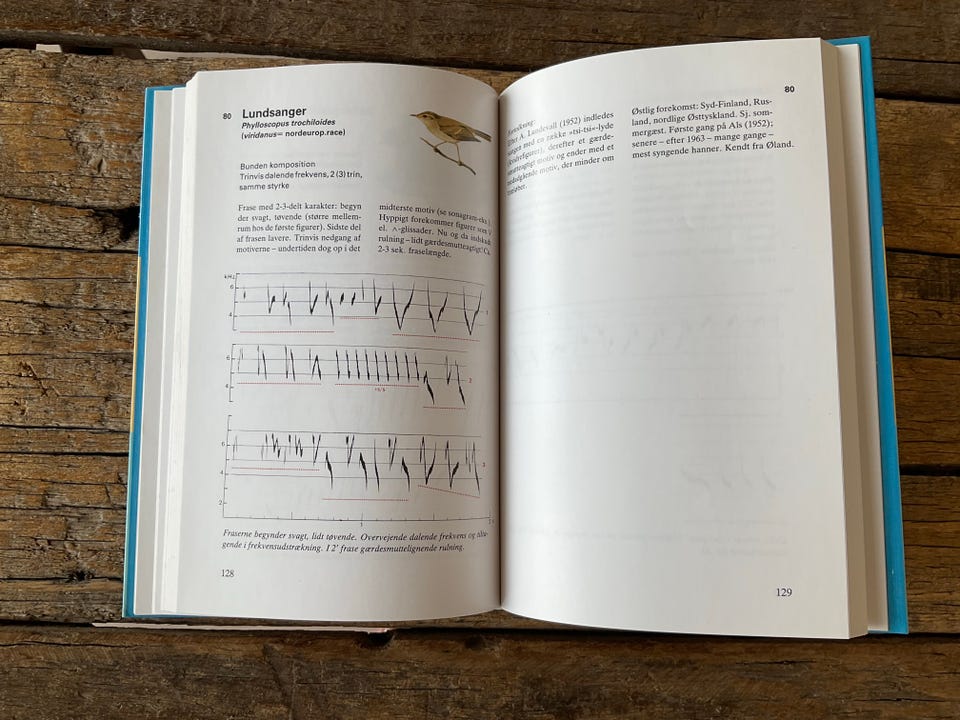 80 Lundsanger
Phylloscopus trochiloides
(viridanus= nordeurop.race)
Bunden komposition
Trinvis dalende frekvens, 2 (3) trin,
samme styrke
Frase med 2-3-delt karakter: begyn
der svagt, tøvende (større mellem-
rum hos de første figurer). Sidste del
af frasen lavere. Trinvis nedgang af
motiverne – undertiden dog op i det
midterste motiv (se sonagram-eks.).
Hyppigt forekommer figurer som V
el. ^-glissader. Nu og da indskudt
rulning – lidt gærdesmutteagtigt! Ca.
2-3 sek. fraselængde.
kHz
6
4
1
6
4
15/s
2
6
4
3
2
1
Fraserne begynder svagt, lidt tøvende. Overvejende dalende frekvens og tilta-
gende i frekvensudstrækning. I 2' frase gærdesmuttelignende rulning.
128
80
A. Lundevall (1952) indledes
med en række »tsi-tsi«-lyde
derefter et gærde-
motiv og ender med et
motiv, der minder om
Østlig forekomst: Syd-Finland, Rus-
land, nordlige Østtyskland. Sj. som-
mergæst. Første gang på Als (1952);
senere – efter 1963 – mange gange –
mest syngende hanner. Kendt fra Øland.
129